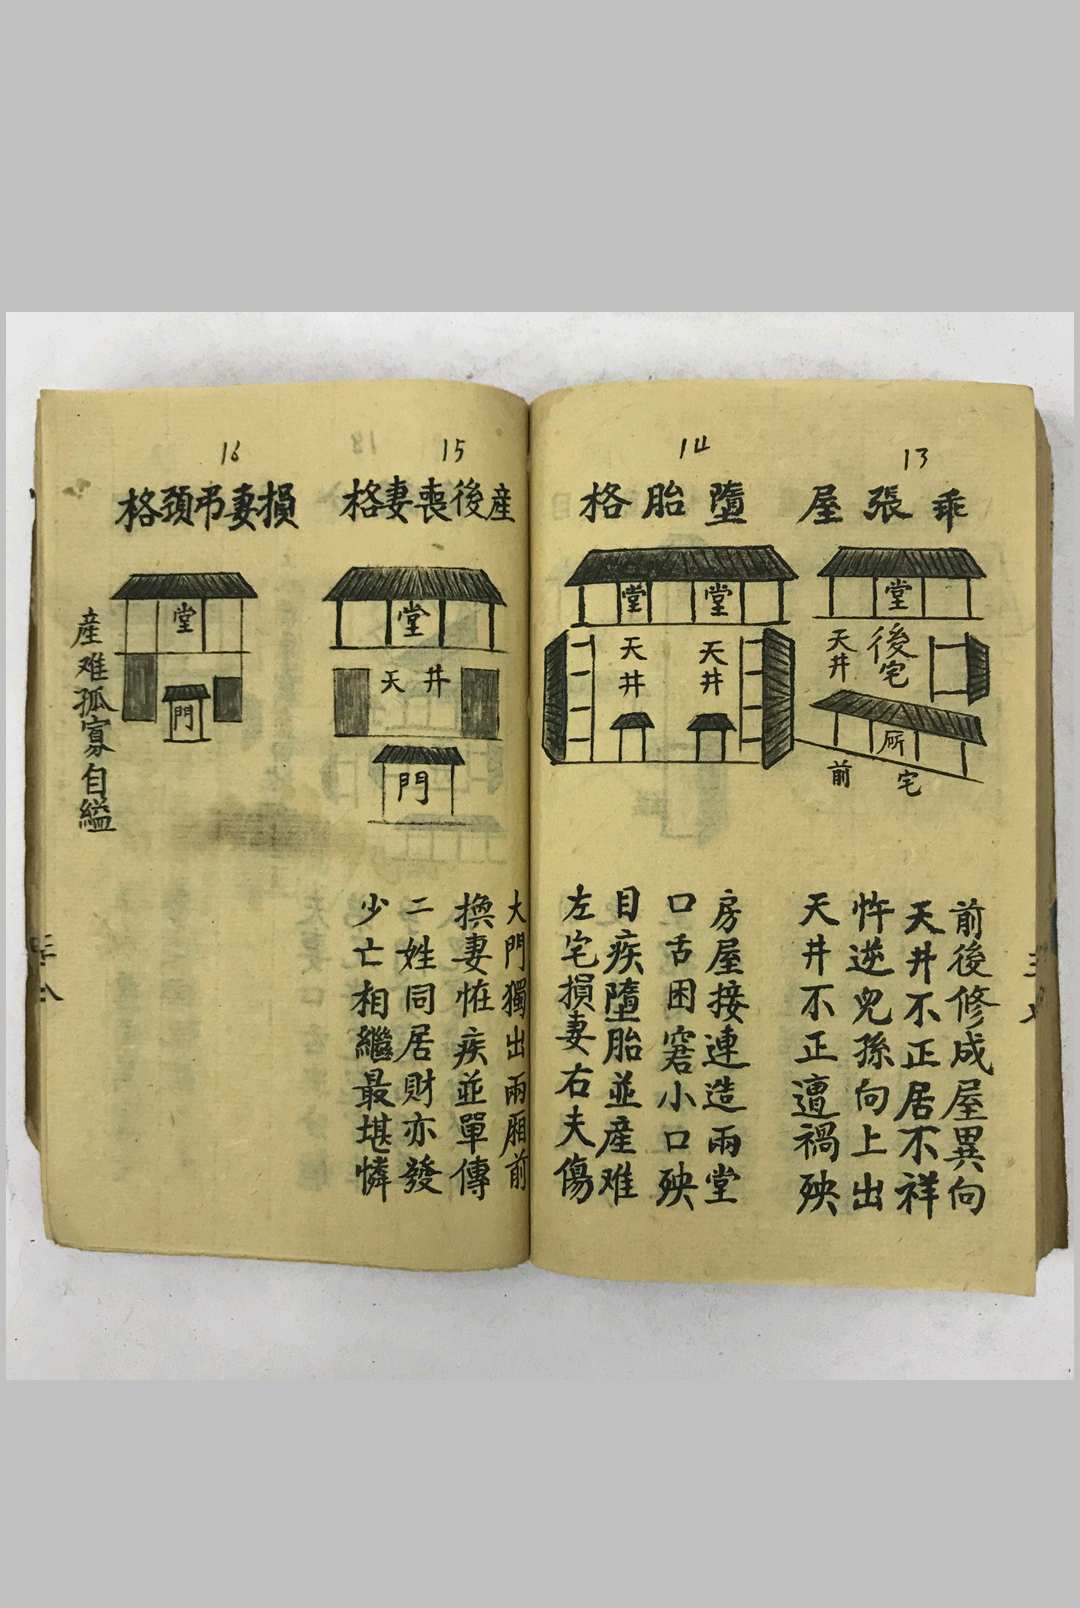 13
乖張屋
堂
天井
後宅
厛
前宅
前後修成屋異向
天井不正居不祥
忤逆兒孫向上出
天井不正遭禍殃
14
墮胎格
堂
堂
天井
天井
房屋接連造兩堂
口舌困窘小口殃
目疾墮胎並產难
左宅損妻右夫傷
15
產後喪妻格
堂
天井
門
大門獨出兩厢前
換妻怪疾並單傳
二姓同居財亦發
少亡相繼最堪憐
16
損妻弔頚格
堂
門
産难孤寡自縊